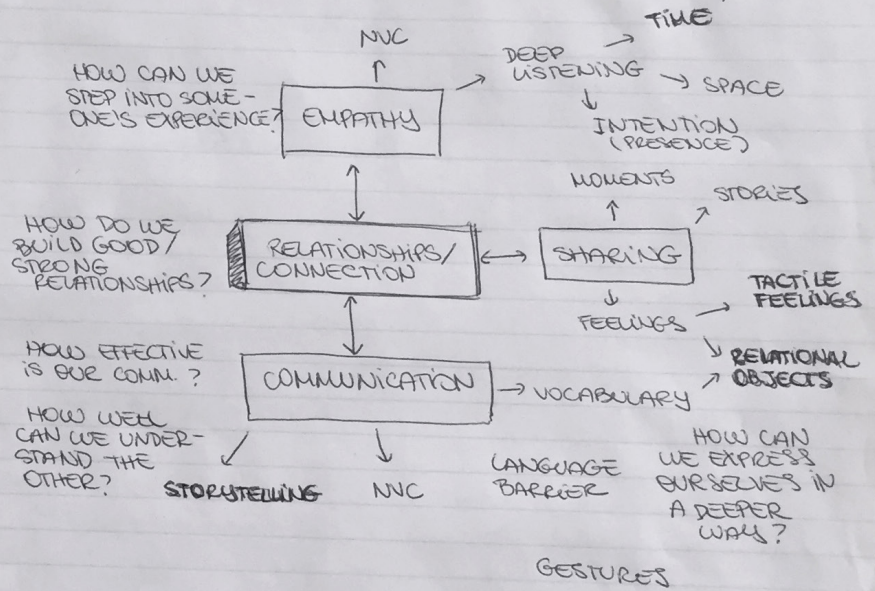 TIME
NVC
DEEP
LISTENING
HOW CAN WE
STEP INTO SOME-
ONE'S EXPERIENCE?
SPACE
EMPATHY
INTENTION
(PRESENCE)
MOMENTS
STORIES
HOW DO WE
BUILD GOOD/
STRONG
RELATIONSHIPS?
RELATIONSHIPS/
CONNECTION
SHARING
TACTILE
FEELINGS
FEELINGS
RELATIONAL
OBJECTS
HOW EFFECTIVE
IS OUR COMM.?
COMMUNICATION
VOCABULARY
HOW WELL
CAN WE UNDER-
STAND THE
OTHER?
STORYTELLING
NVC
LANGUAGE
BARRIER
HOW CAN
WE EXPRESS
OURSELVES IN
A DEEPER
WAY?
GESTURES